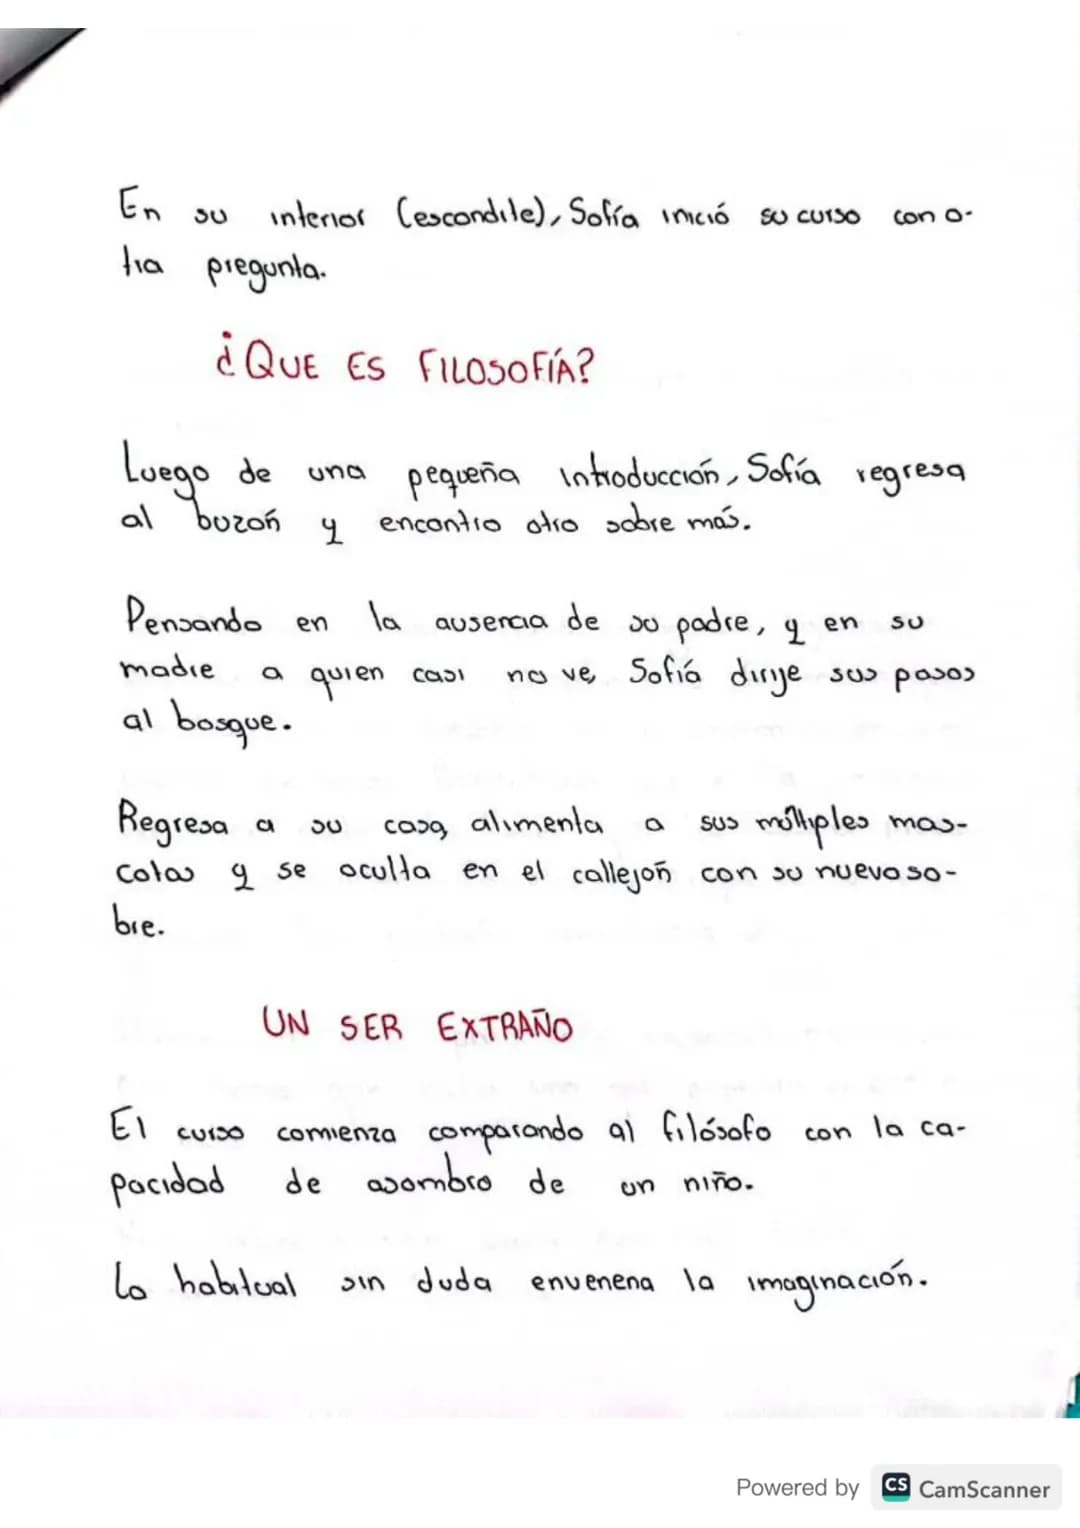 En su interior (escondite), Sofía inició su curso con o-
tra pregunta.
¿QUE ES FILOSOFÍA?
Luego de una pequeña introducción, Sofía regresa
al buzón y encontro otro sobre más.
Pensando en la ausencia de su padre, y en su
madre a quien casi no ve, Sofía dirije sus pasos
al bosque.
Regresa a su casa, alimenta a sus múltiples mas-
cotas y se oculta en el callejón con su nuevo so-
bre.
UN SER EXTRAÑO
El curso comienza comparando al filósofo con la ca-
pacidad de asombro de un niño.
Lo habitual sin duda envenena la imaginación.
Powered by CS CamScanner